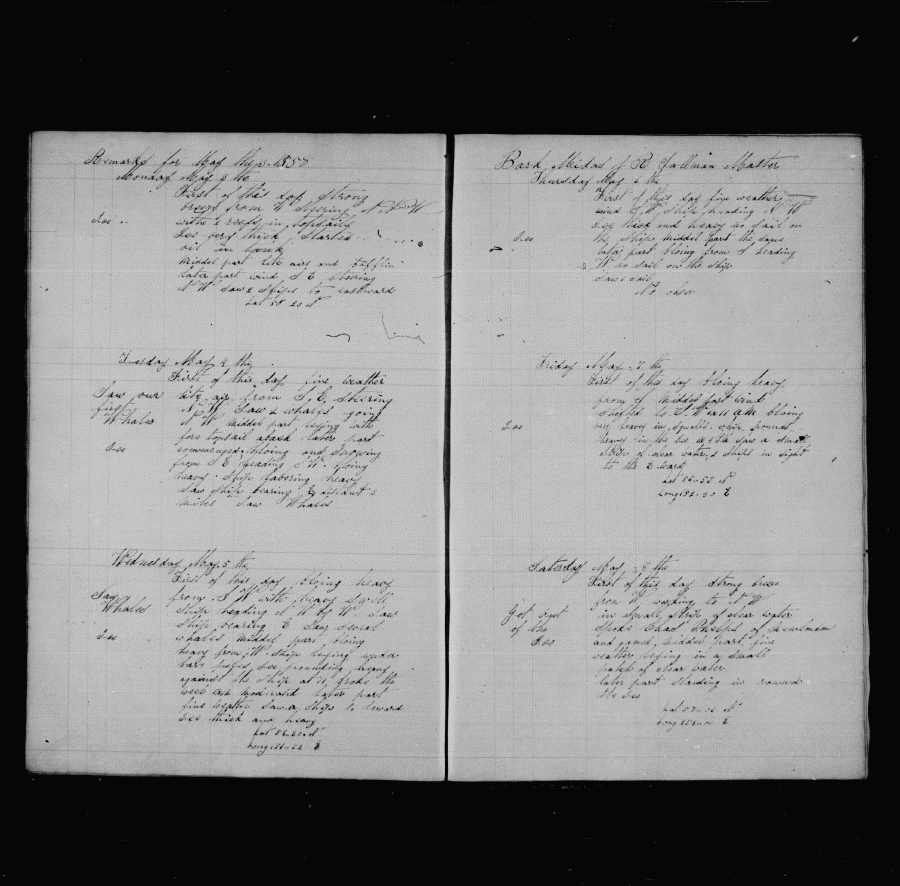 Remarks for May the 1857
Monday May 3 the
First of this day strong
breeze from W Stering N N W
with 2 reefs in topsails
Ice
Ice very thick Started
oil in
Middel part lite airs and bafflin
later part wind S E Steering
N W Saw 2 Ships to eastward
Lat 58 20 N
Tuesday May 4 the
First of this day fine weather
Saw our first Whales
lite air from S.E. Steering
N W Saw 2 whales going
N W middel part lying with
fore topsail aback later part
Ice
commenced bloing and snowing
from S E heading S W. bloing
heavy Ship labering heavy
Saw Ship bearing E distant 3
miles Saw Whales
Wednesday May 5 the
First of this day bloing heavy
Saw Whales
from S W with heavy Swell
Ship heading N W by W Saw
Ship bearing E Saw several
Ice
whales middel part bloing
heavy from W Ship laying under
bare poles, Ice pounding heavy
against the Ship at 10,
later part
fine weather Saw a Ship to leward
Ice thick and heavy
Lat 56
Long 151 52 E
Bark Midas of R Tallman Master
Thursday May 6 the
First of this day fine weather
wind S W Ship heading N W
Ice thick and heavy no Sail on
Ice
the Ship middel part the same
later part bloing from S heading
W no sail on the Ship
Saw 1 sail
No obser
Friday May 7 the
First of this day bloing heavy
from S middel part wind
Shifted to S W at 11 AM bloing
Ice
very heavey in Squalls. Ship pounds
heavey in the Ice Saw a Small
of clear water, 2 Ships in sight
to the E ward
Lat 56-52 N
Long 152-20 E
Saterday May 8 the
First of this day Strong brees
from W working to N W
Got out of the Ice
in Small Strip of clear water
Spoke Chas Phelps of
and gamed, middel part fine
weather lying in a Small
patch of clear water
later part Standing in
the Ice